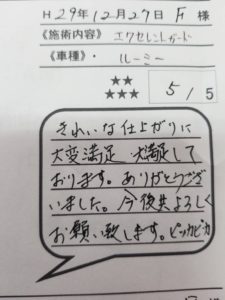 H29年12月27日 F 様
《施術内容》 エクセレントガード
《車種》・ ルーミー
★★
★★★
5/5
きれいな仕上がりに
大変満足 大満足して
おります。ありがとうござ
いました。今後共よろしく
お願い致します。ピッカピカ